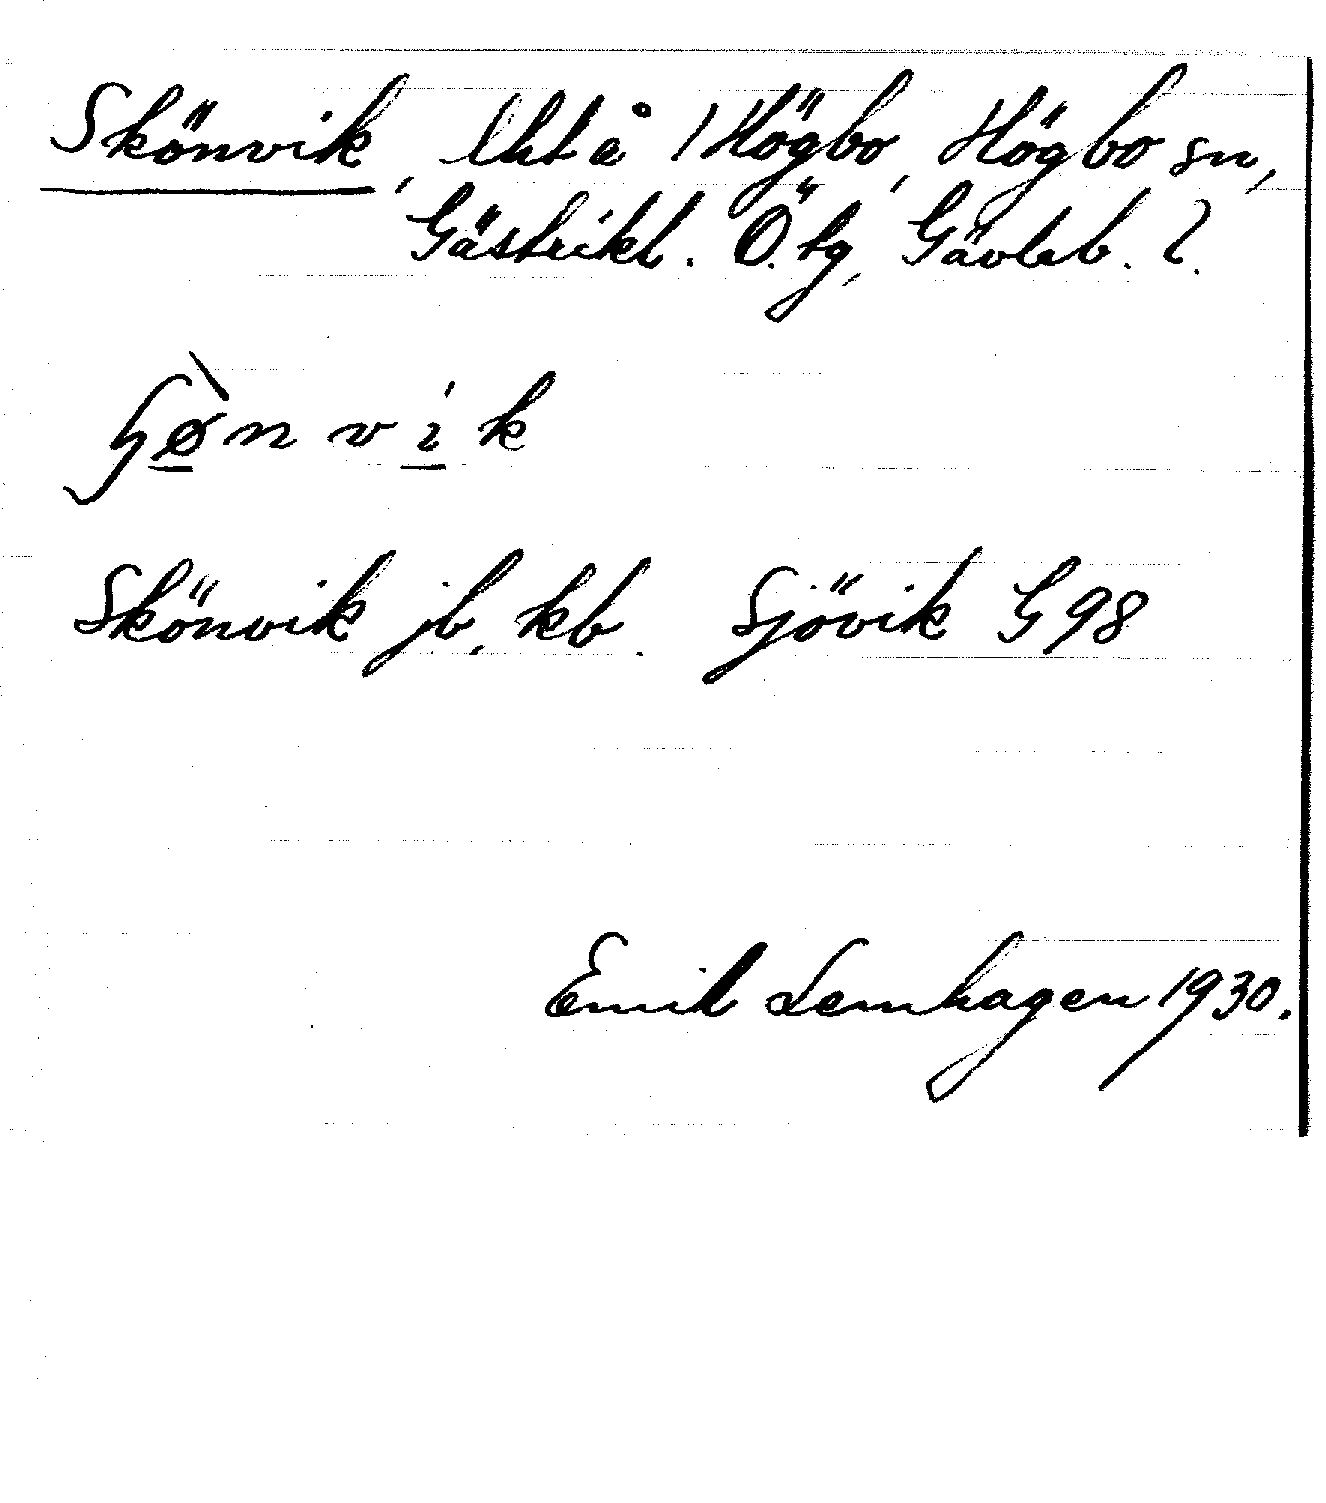 Skönvik, lht å 1 Högbo, Högbo sn,
Gästrikl. Ö. tg, Gävleb. l.
ɧønvik
Skönvik jb, kb. Sjövik G 98
Emil Lemhagen 1930.